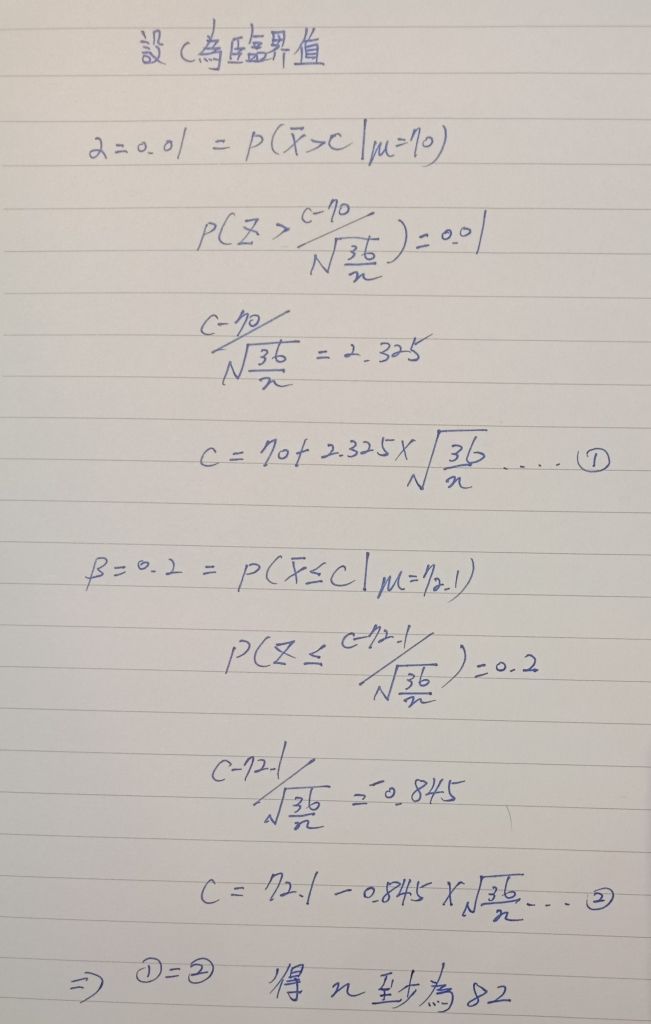 設 C為臨界值
α=0.01 = P(X̄>C|μ=70)
P(Z > C-70/√(36/n)) = 0.01
C-70/√(36/n) = 2.325
C = 70+ 2.325×√(36/n) .... ①
β=0.2 = P(X̄≤C|μ=72.1)
P(Z ≤ C-72.1/√(36/n)) = 0.2
C-72.1/√(36/n) = -0.845
C = 72.1 - 0.845 ×√(36/n) .... ②
⇒ ①=② 得 n至少為 82